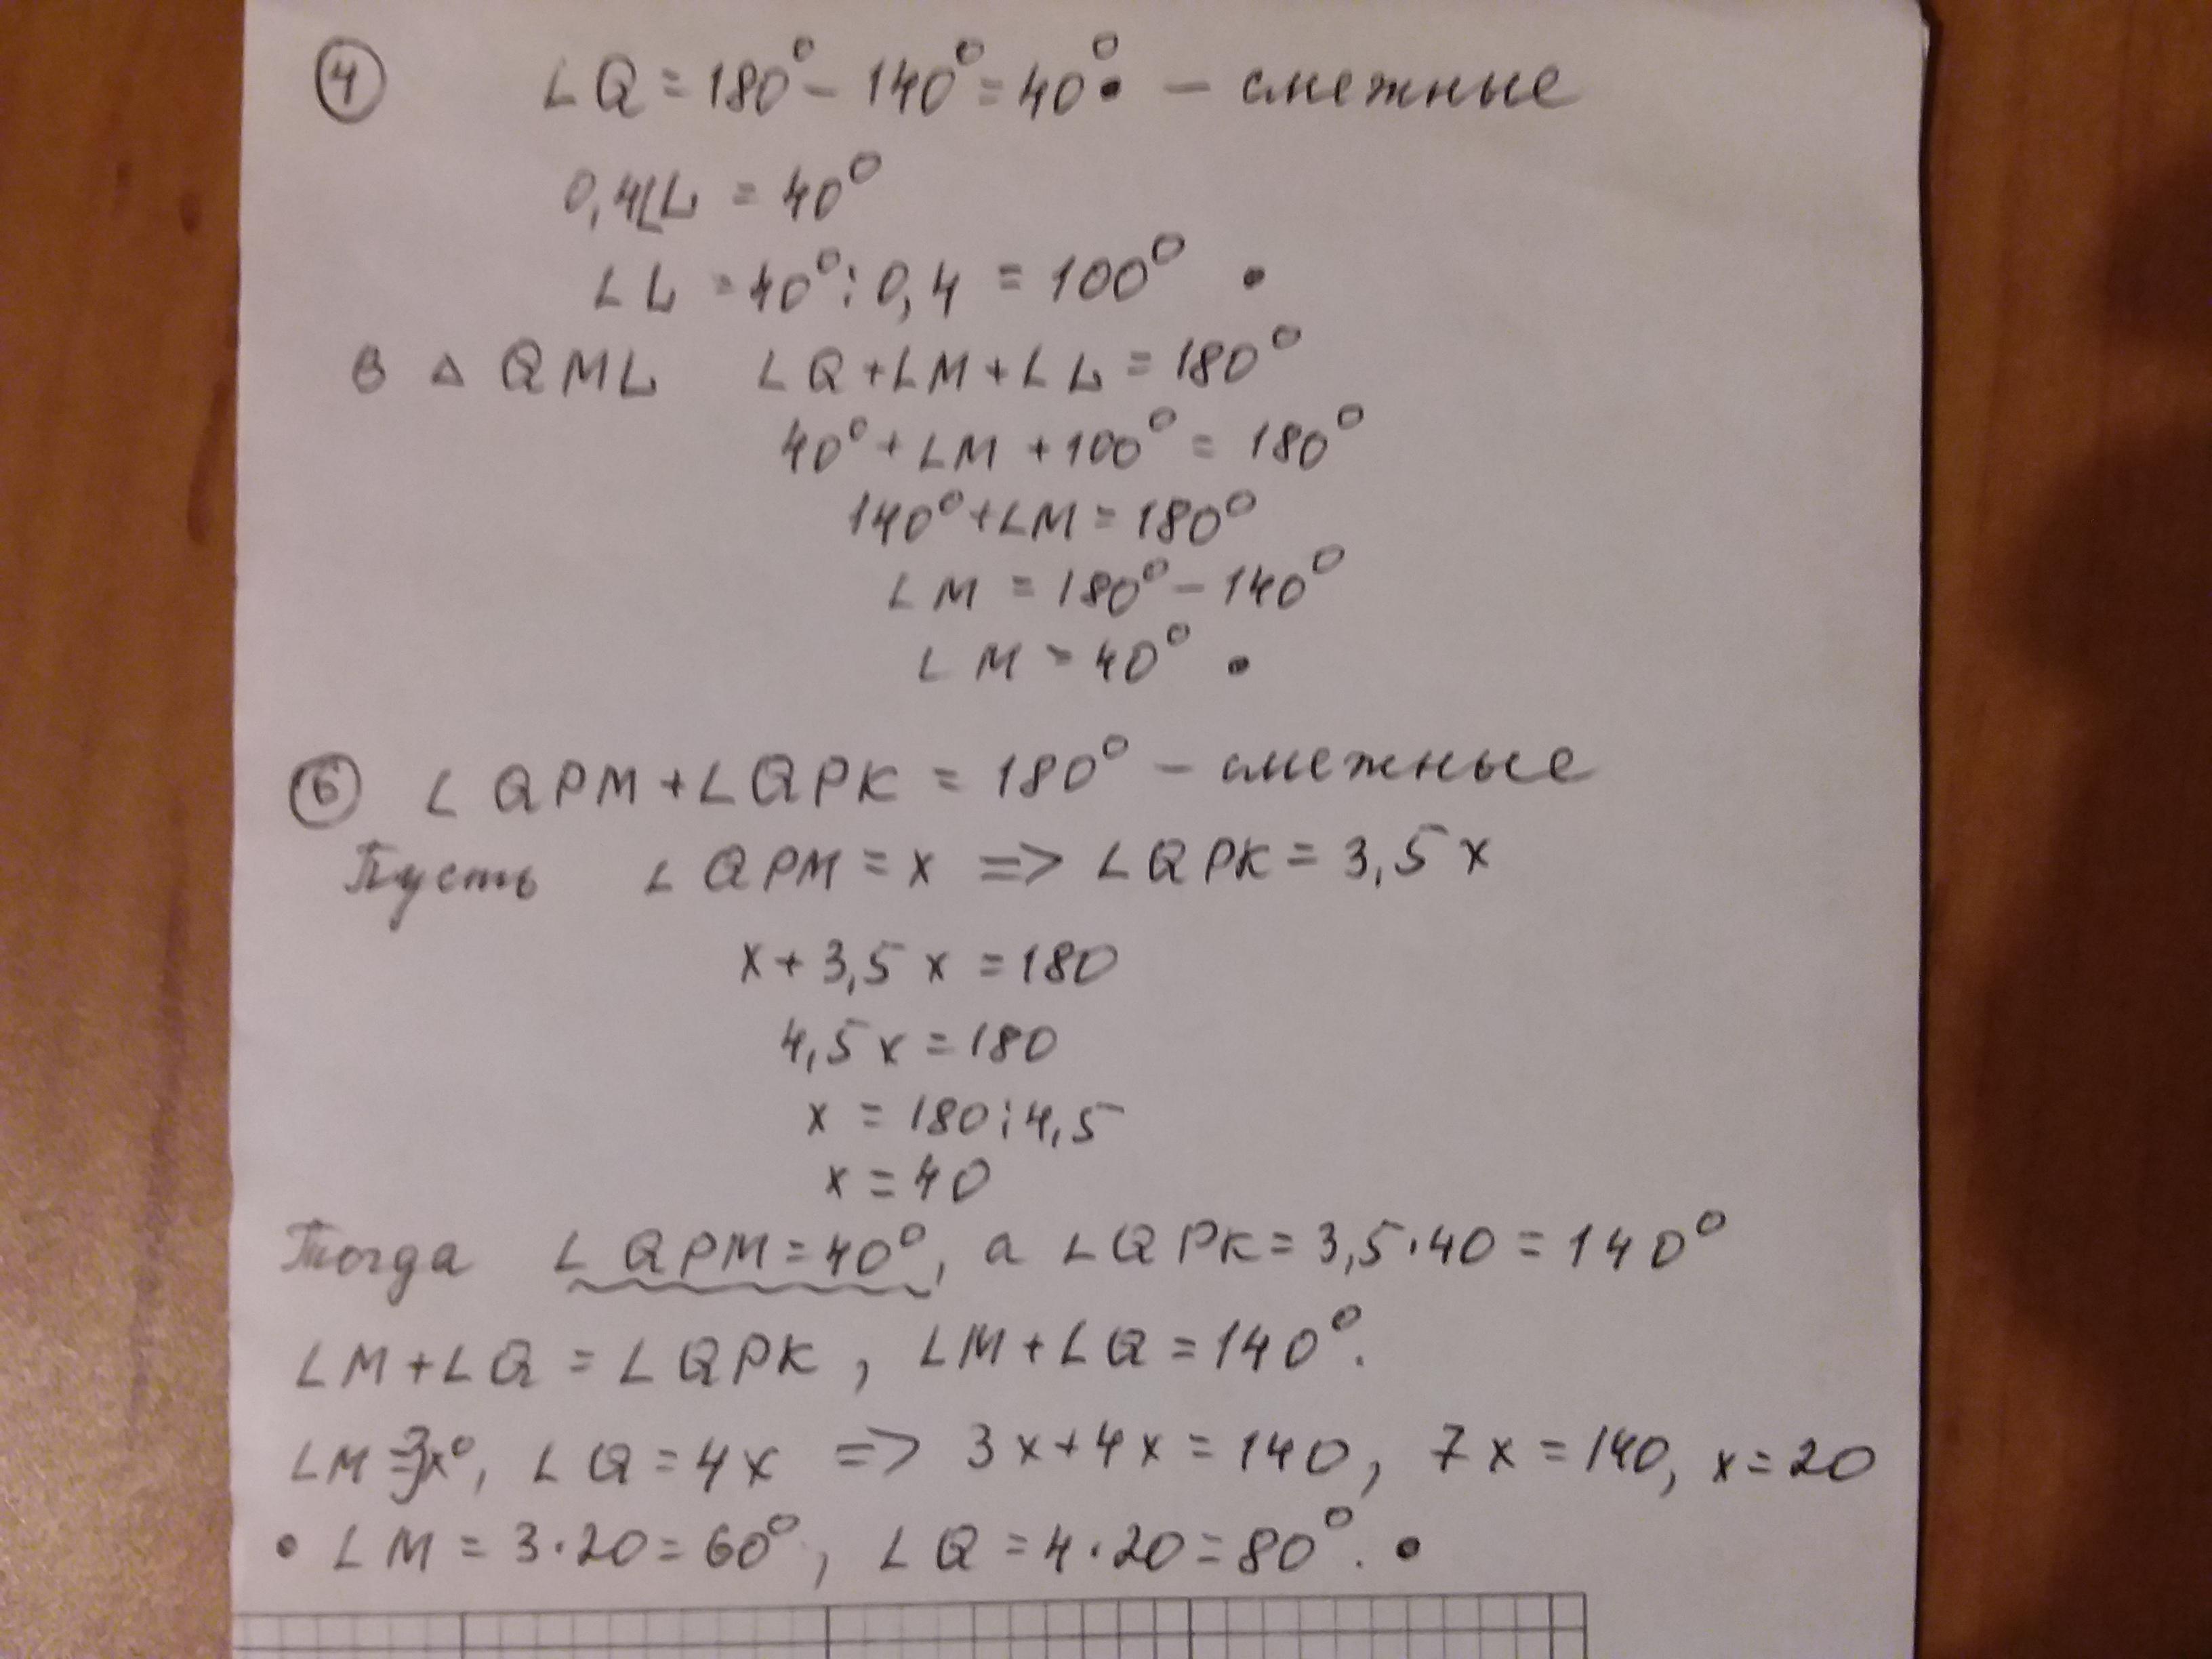 ④ ∠Q = 180° - 140° = 40° • - смежные
0,4∠L = 40°
∠L = 40° : 0,4 = 100° •
В △ QML ∠Q + ∠M + ∠L = 180°
40° + ∠M + 100° = 180°
140° + ∠M = 180°
∠M = 180° - 140°
∠M = 40° •
⑥ ∠QPM + ∠QPK = 180° - смежные
Пусть ∠QPM = x => ∠QPK = 3,5x
x + 3,5x = 180
4,5x = 180
x = 180 : 4,5
x = 40
Тогда ∠QPM = 40°, а ∠QPK = 3,5 · 40 = 140°
∠M + ∠Q = ∠QPK, ∠M + ∠Q = 140°.
∠M = 3x°, ∠Q = 4x => 3x + 4x = 140, 7x = 140, x = 20
• ∠M = 3 · 20 = 60°, ∠Q = 4 · 20 = 80°. •